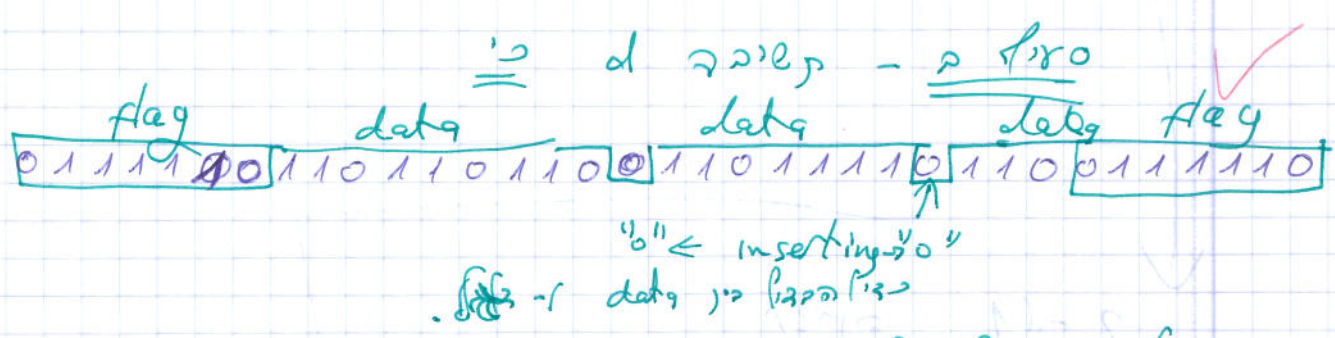 סעיף ב - תשובה כי
flag data data data flag
0 1 1 1 1 1 1 0 1 1 0 1 1 0 1 1 0 0 1 1 0 1 1 1 1 1 0 1 1 0 0 1 1 1 1 1 1 0
"0" ← inserting "0"
כדי להבדיל בין data ל-